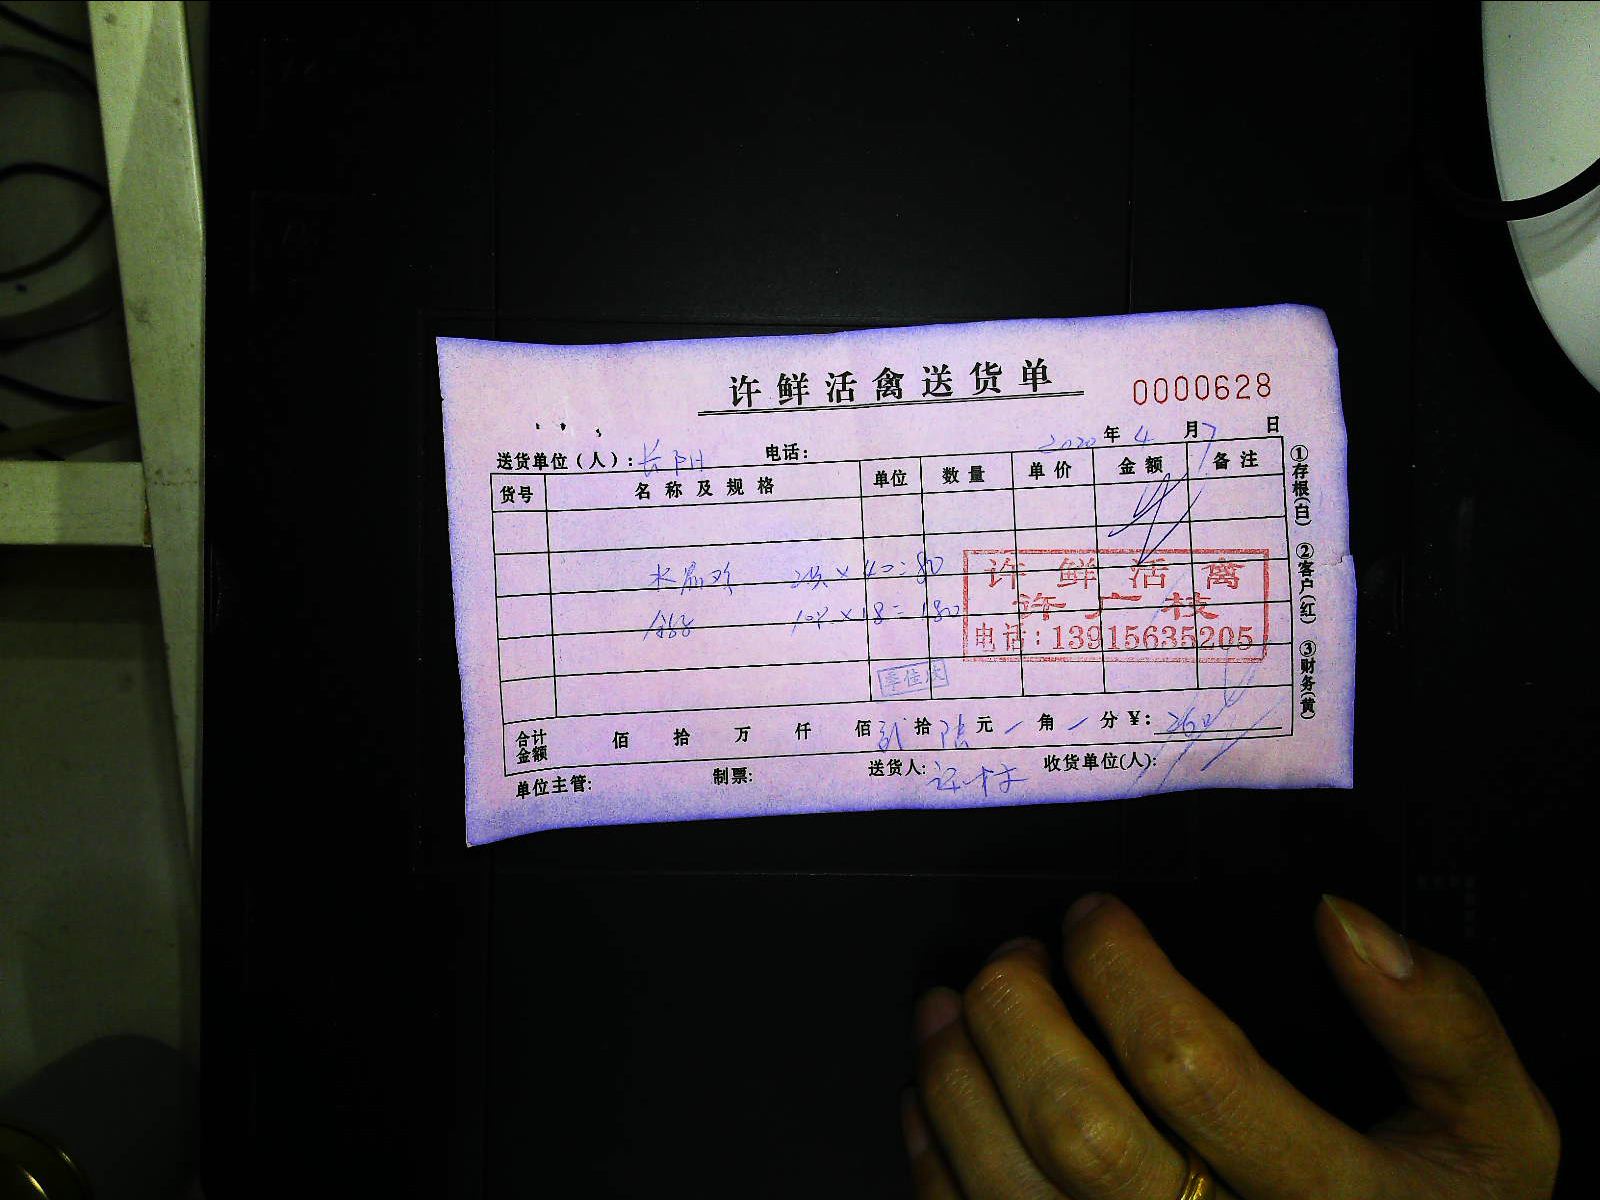 许鲜活禽送货单
0000628
2020年4月7日
送货单位(人):长阳 电话:
货号 名称及规格 单位 数量 单价 金额 备注
2只×40=80
10只×18=180
许鲜活禽
许广枝
电话:13915635205
季佳庆
合计金额 佰 拾 万 仟 佰贰拾陆元 角 分 ¥:260
单位主管: 制票: 送货人: 收货单位(人):
①存根(白) ②客户(红) ③财务(黄)